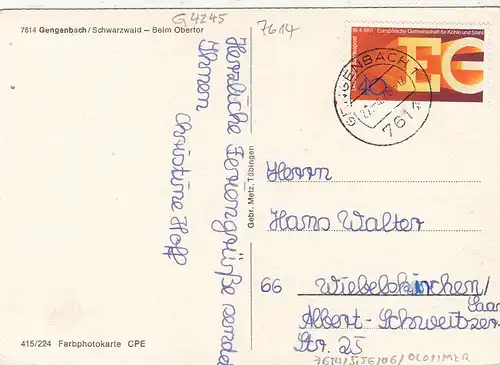 G4245
7614
7614 Gengenbach/Schwarzwald – Beim Obertor
Herzliche Feriengrüße sendet
Ihnen
Christine Hoff
Gebr. Metz, Tübingen
18.4.1951 Europäische Gemeinschaft für Kohle und Stahl
EG
40
GENGENBACH 1
7614
Herrn
Hans Walter
66 Wiebelskirchen/
Saar
Albert-Schweitzer
Str. 25
415/224 Farbphotokarte CPE
OLDTIMER